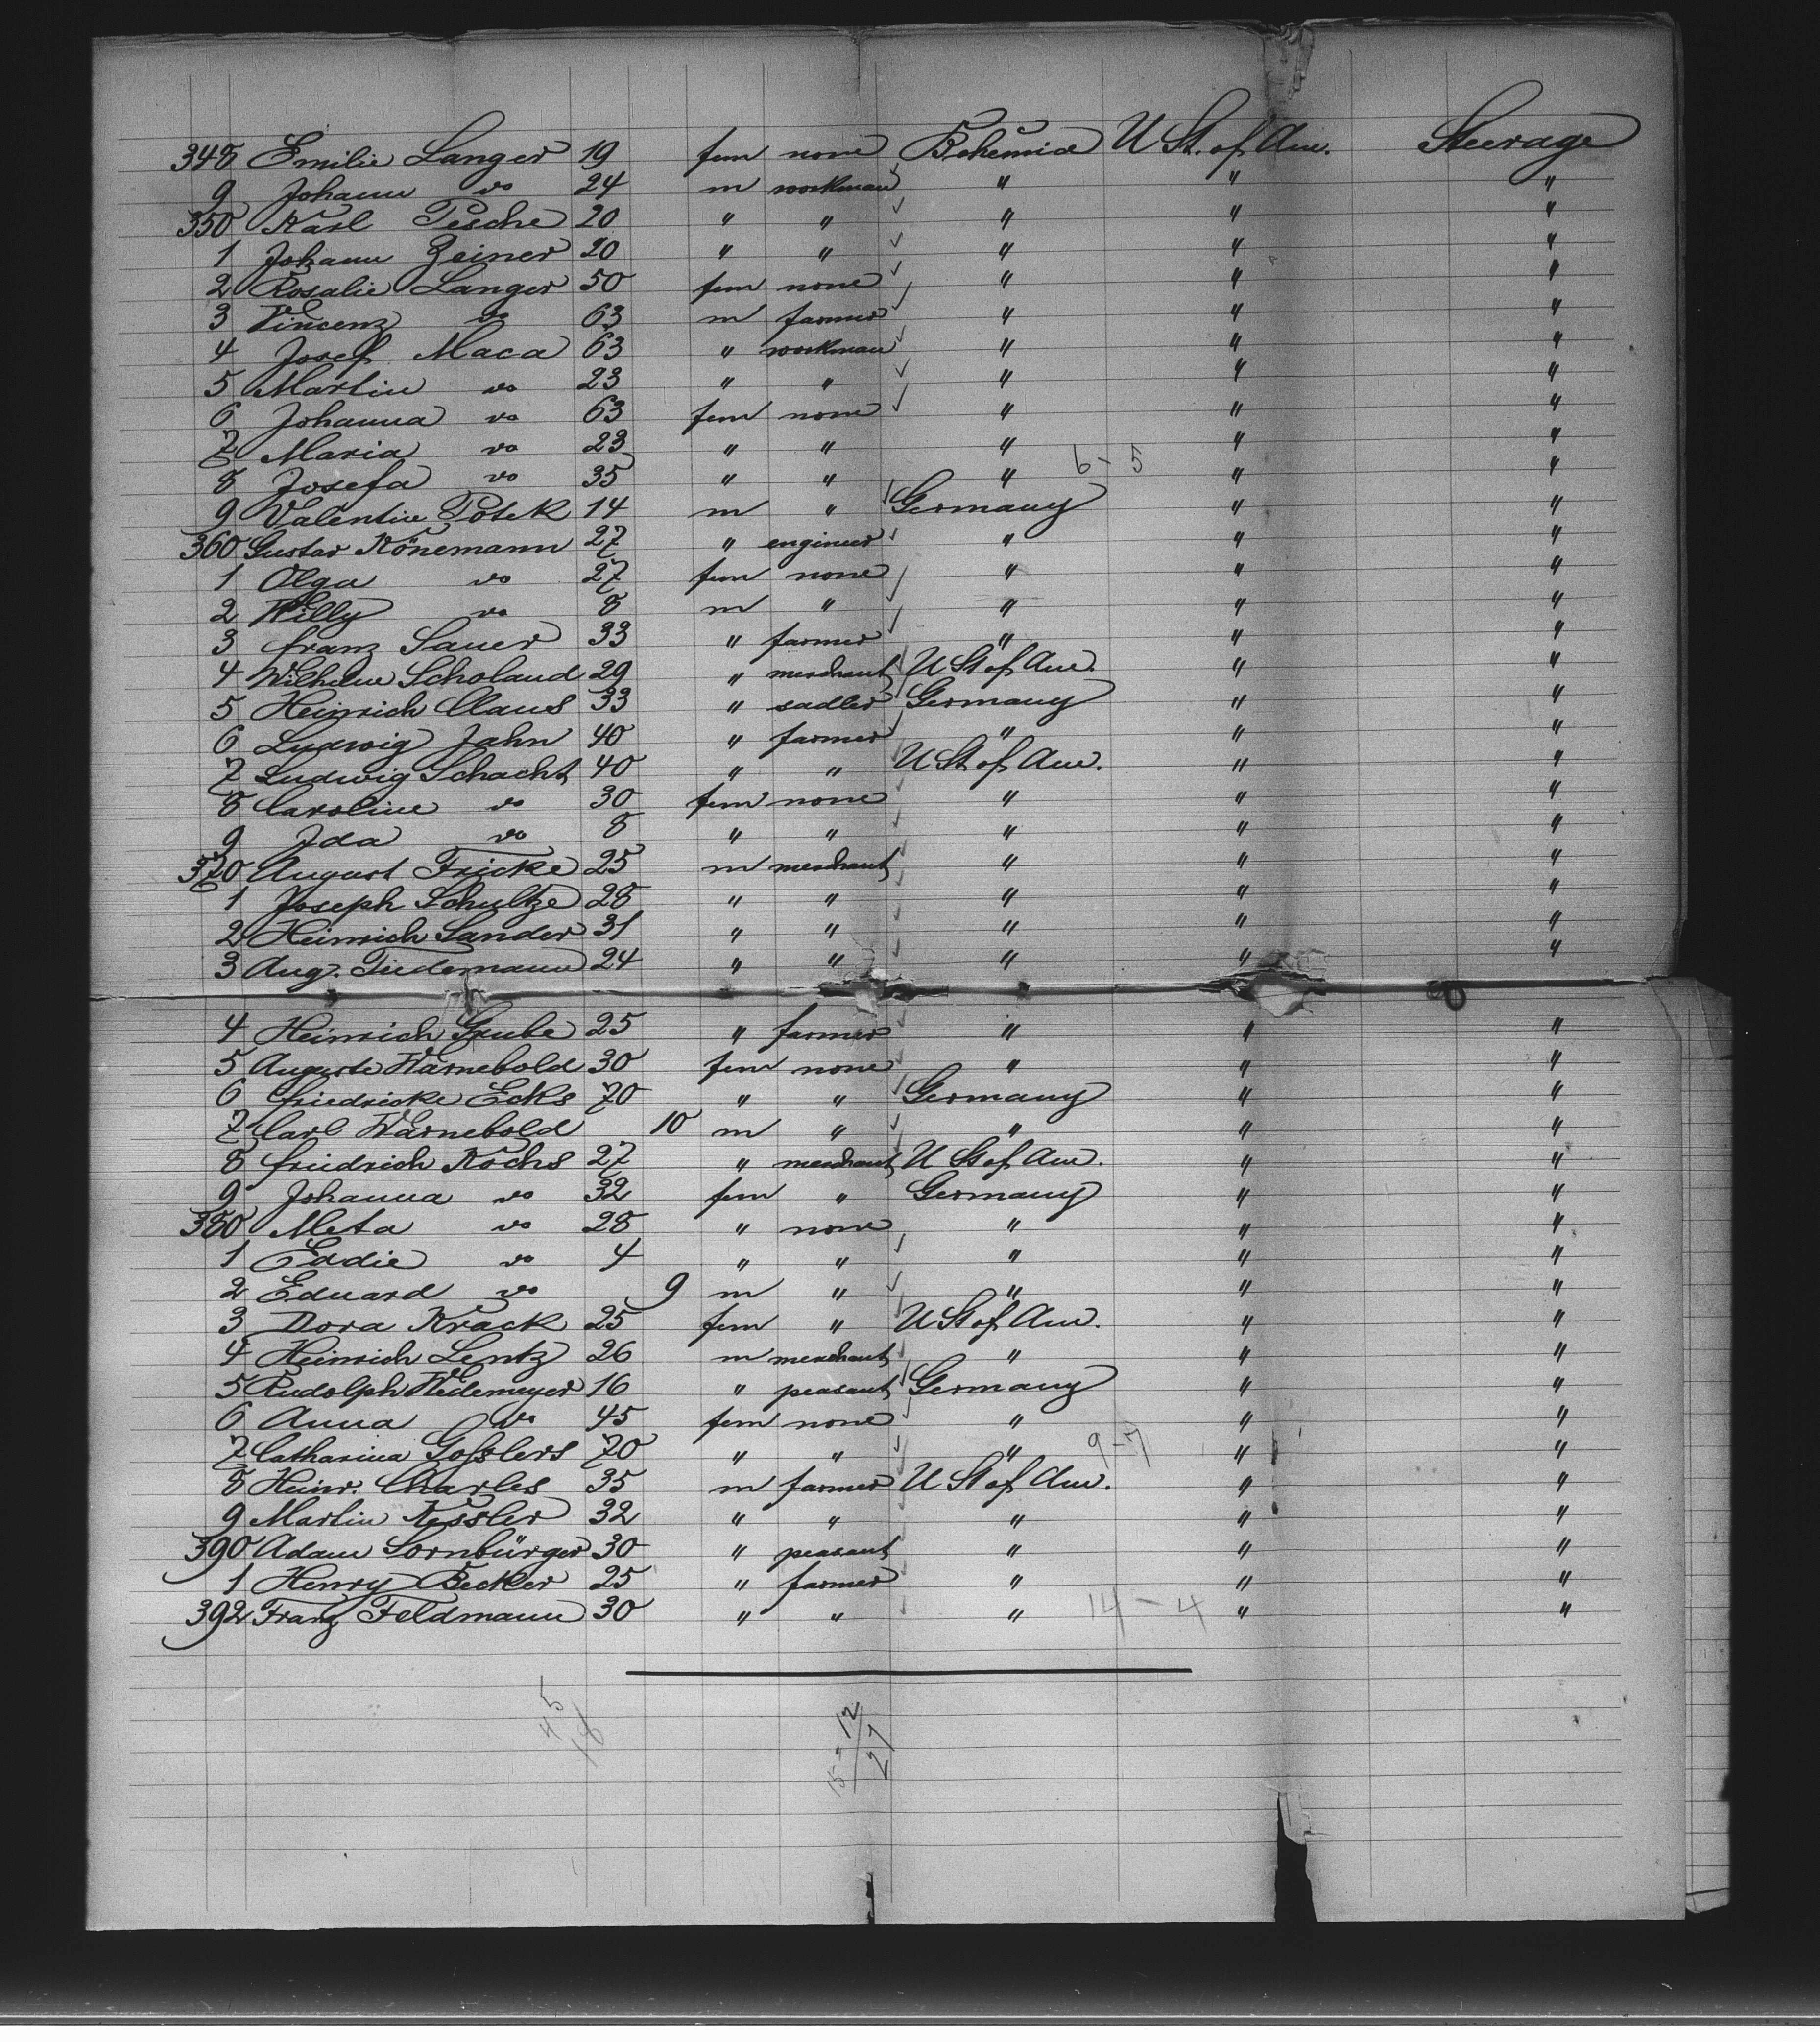 348 Emilie Langer 19 fem none Bohemia U St. of Am. Steerage
9 Johann do 24 m workman " " "
350 Karl Pesche 20 " " " " "
1 Johann Zeiner 20 " " " " "
2 Rosalie Langer 50 fem none " " "
3 Vincenz do 63 m farmer " " "
4 Josef Maca 63 " workman " " "
5 Martin do 23 " " " " "
6 Johanna do 63 fem none " " "
7 Maria do 23 " " " " "
8 Josefa do 35 " " " 6-5 " "
9 Valentin Potek 14 m " Germany " "
360 Gustav Könemann 27 " engineer " " "
1 Olga do 27 fem none " " "
2 Willy do 8 m " " " "
3 Franz Sauer 33 " farmer " " "
4 Wilhelm Scholand 29 " merchant U St of Am. " "
5 Heinrich Claus 33 " sadler Germany " "
6 Ludwig Jahn 40 " farmer " " "
7 Ludwig Schacht 40 " " U St of Am. " "
8 Caroline do 30 fem none " " "
9 Ida do 8 " " " " "
370 August Fricke 25 m merchant " " "
1 Joseph Schultze 28 " " " " "
2 Heinrich Sander 31 " " " " "
3 Aug. Tiedemann 24 " " " " "
4 Heinrich Grube 25 " farmer " " "
5 Auguste Warnebold 30 fem none " " "
6 Friedricke Ecks 70 " " Germany " "
7 Carl Warnebold 10 m " " " "
8 Friedrich Kochs 27 " merchant U St of Am. " "
9 Johanna do 32 fem " Germany " "
380 Meta do 28 " none " " "
1 Eddie do 4 " " " " "
2 Eduard do 9 m " " " "
3 Dora Krack 25 fem " U St of Am. " "
4 Heinrich Lentz 26 m merchant " " "
5 Rudolph Wedemeyer 16 " peasant Germany " "
6 Anna do 45 fem none " " "
7 Catharina Gosslers 70 " " " 9-7 " "
8 Heinr. Charles 35 m farmer U St of Am. " "
9 Martin Kessler 32 " " " " "
390 Adam Sornbürger 30 " peasant " " "
1 Henry Becker 25 " farmer " " "
392 Franz Feldmann 30 " " " 14-4 " "
45
18
15-12
27